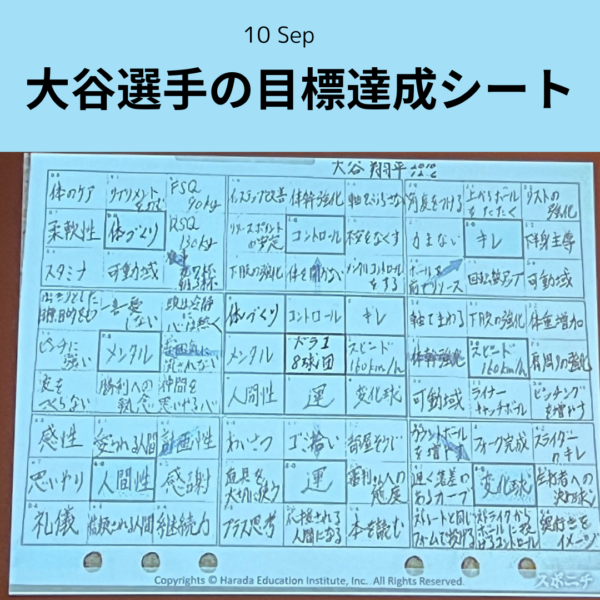 10 Sep
大谷選手の目標達成シート
大谷 翔平
体のケア
サプリメント
をのむ
FSQ
90kg
インステップ改善
体幹強化
軸をぶらさない
角度をつける
上からボール
をたたく
リストの
強化
柔軟性
体づくり
RSQ
130kg
リリースポイント
の安定
コントロール
不安をなくす
力まない
キレ
下半身主導
スタミナ
可動域
下肢の強化
体を開かない
メンタルコントロール
をする
ボールを
前でリリース
回転数アップ
可動域
はっきりとした
目標、目的をもつ
一喜一憂
しない
頭は冷静に
心は熱く
体づくり
コントロール
キレ
軸でまわる
下肢の強化
体重増加
ピンチに
強い
メンタル
雰囲気に
流されない
メンタル
ドラ1
8球団
スピード
160km/h
体幹強化
スピード
160km/h
肩周りの強化
波を
つくらない
勝利への
執念
仲間を
思いやる心
人間性
運
変化球
可動域
ライナー
キャッチボール
ピッチング
を増やす
感性
愛される人間
計画性
あいさつ
ゴミ拾い
部屋そうじ
カウントボール
を増やす
フォーク完成
スライダー
のキレ
思いやり
人間性
感謝
道具を
大切に使う
運
審判さんへの
態度
遅く落差の
あるカーブ
変化球
左打者への
決め球
礼儀
信頼される人間
継続力
プラス思考
応援される
人間になる
本を読む
ストレートと同じ
フォームで投げる
ストライクから
ボールに投
げるコントロール
奥行きを
イメージ
Copyrights © Harada Education Institute, Inc. All Rights Reserved.
スポニチ